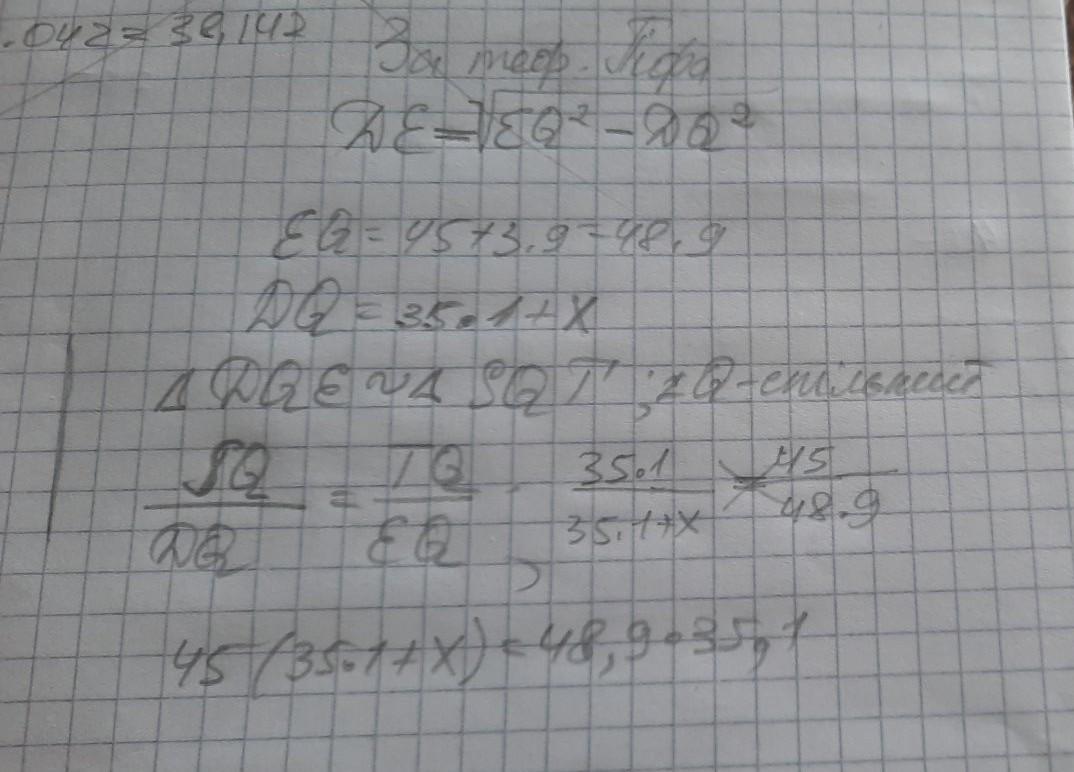 .042 = 39,142
За теор. Піфа
DE = √EQ² - DQ²
EQ = 45 + 3.9 = 48.9
DQ = 35.1 + x
Δ DQE ~ Δ SQT ; ∠Q - спільний
SQ/DQ = TQ/EQ , 35.1/35.1+x = 45/48.9
45(35.1+x) = 48,9 • 35,1